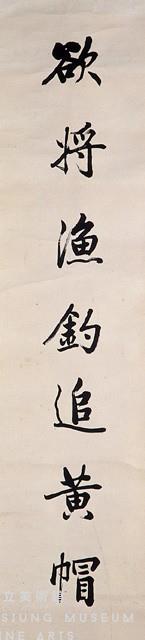 欲將漁釣追黃帽
立美術
SIUNG MUSEUM
INE ARTS